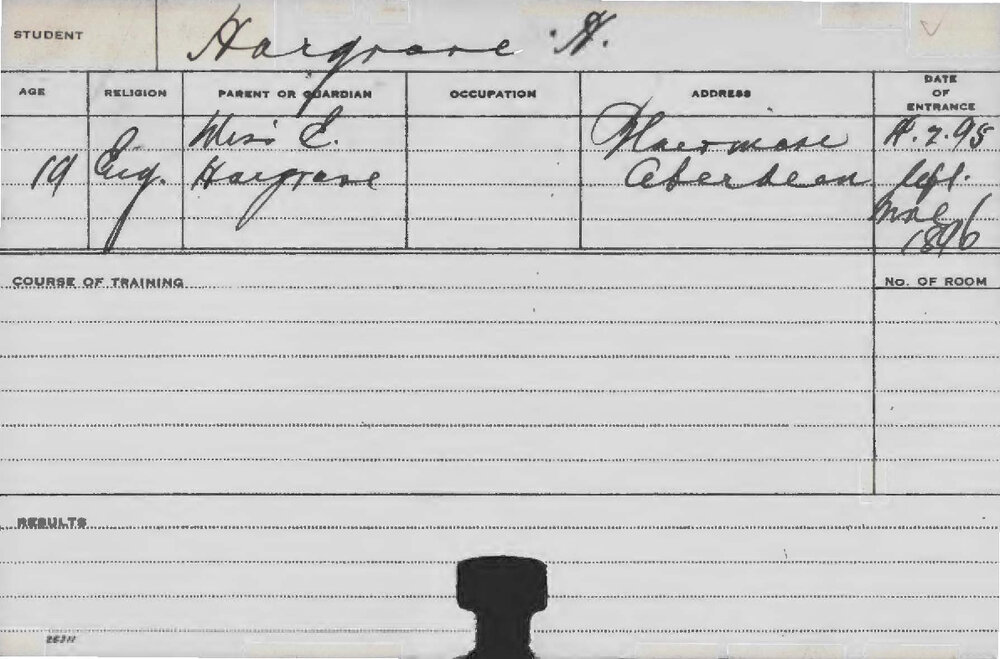 STUDENT Hargrave H.
AGE RELIGION PARENT OR GUARDIAN OCCUPATION ADDRESS DATE OF ENTRANCE
Miss E. 2.95
19 Eng. Hargrave Aberdeen left
1896
COURSE OF TRAINING No. OF ROOM
RESULTS